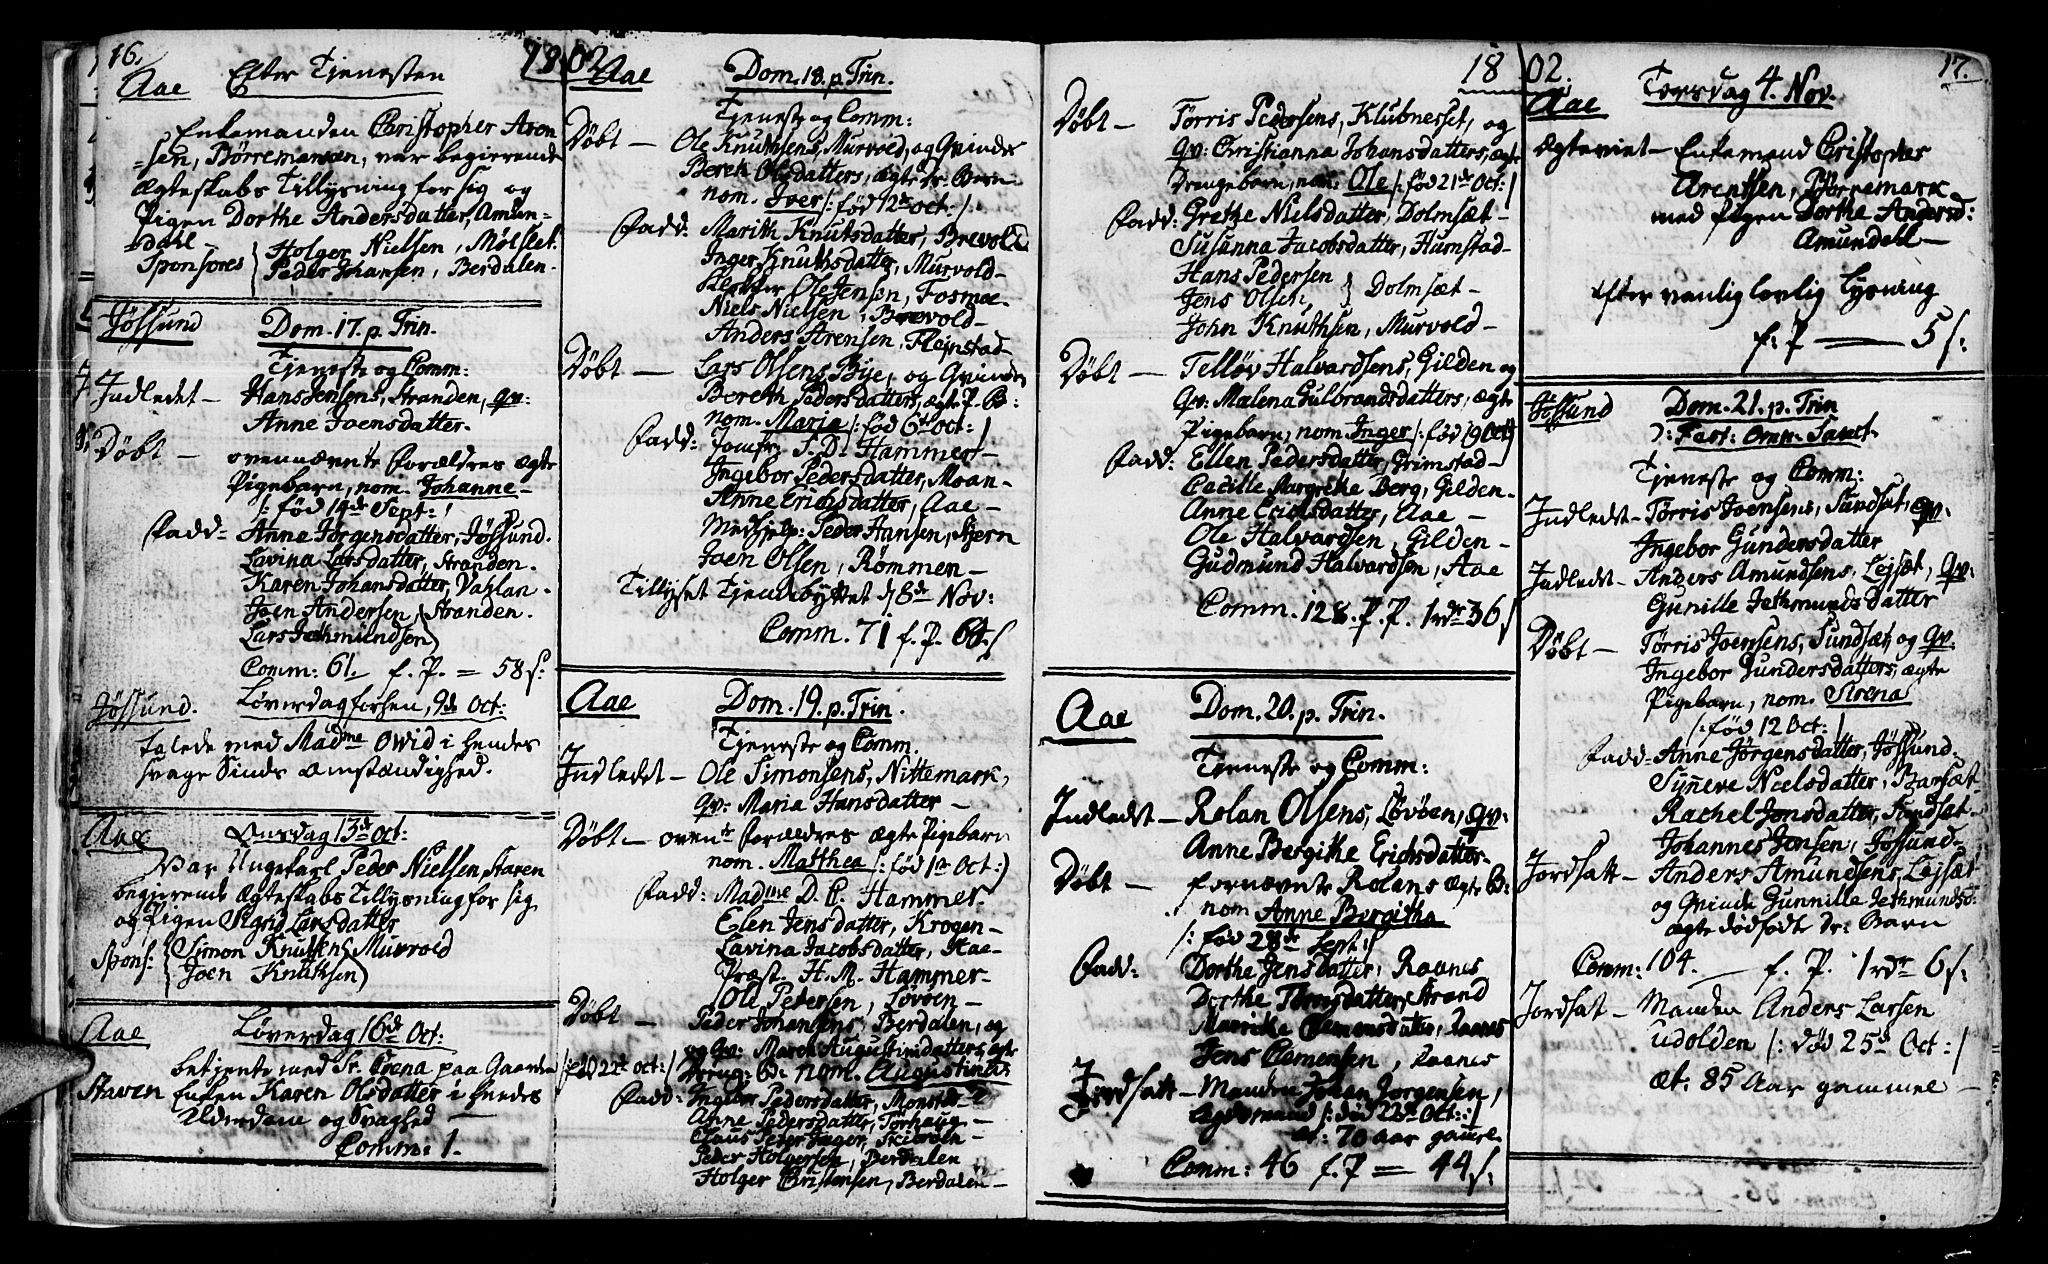 16.
1802
Aae Efter Tjenesten
Enkemanden Christopher Aron
=sen, Börremarken, var begierende
Ægteskabs Tillysning for sig og
Pigen Dorthe Andersdatter, Amun=
dahl
Sponsores Holger Nielsen, Mølslet.
Peder Johansen, Berdalen.
Jössund Dom. 17. p. Trin.
Tjeneste og Comm:
Indledet - Hans Jensens, Stranden, qv:
Anne Joensdatter.
Døbt - ovennævnte Forældres ægte
Pigebarn, nom. Johanne -
/: fød 14de Sept: /
Fadd= Anne Jörgensdatter, Jössund.
Lavina Larsdatter, Stranden.
Karen Johansdatter, Vaklan -
Joen Andersen, Stranden.
Lars Jethmundsen
Comm: 61. f. P. = 58 s.
Jössund. Løverdag forhen, 9de Oct:
talede med Madme Owid i hendes
svage Sinds Omstændighed.
Aae Onsdag 13de Oct:
Var Ungekarl Peder Nielsen, Staren
begierende Ægteskabs Tillysning for sig
og Pigen Sigrid Larsdatter
Spons: Simon Knutsen Murvold
Joen Knutsen
Aae Løverdag 16de Oct:
betjente med Sr. Coena paa Gaarden
Staren Enken Karen Olsdatter i hendes
Alderdom og Svaghed -
Comm: 1.
Aae Dom. 18. p. Trin.
Tjeneste og Comm:
Døbt - Ole Knuthsens, Murvold, og Qvindes
Bereth Olsdatters, ægte Dr: Barn
nom. Iver /: fød 12te Oct: /
Fadd: Marith Knutsdatter, Brevold
Inger Knuthsdatter, Murvold -
Klokker Ole Jensen, Fosmoe.
Niels Nielsen, Brevold -
Anders Arensen, Flejnstad
Døbt - Lars Olsens, Bye, og Qvindes
Bereth Pedersdatters, ægte P. B:
nom. Maria /: fød 6te Oct: /
Fadd: Jomfr. S. D. Hammer -
Ingebor Pedersdatter, Moan -
Anne Erichsdatter, Aae -
Medhjelp: Peder Hansen, Stjern
Joen Olsen, Rømmen -
Tillyset Tjenebyttet d 8de Nov:
Comm. 71 f. P. 64 s
Aae Dom. 19. p. Trin.
Tjeneste og Comm.
Indledet - Ole Simonsens, Nittemark,
qv: Maria Hansdatter -
Døbt - ovente Forældres ægte Pigebarn
nom. Matthea /: fød 1te Oct: /
Fadd: Madme D. C. Hammer.
Elen Jensdatter, Krogen -
Lavina Jacobsdatter, Aae -
Præst. H. M. Hammer -
Ole Pedersen, Lövöen -
Døbt - Peder Johansens, Berdalen, og
og qv: Maren Augustinidatters, ægte
/: fød 22de Oct: / Dreng: B: nom. Augustinus
Fadd: Ingebor Pedersdatter,
Anne Pedersdatter, Torhaug -
Claus Peter Jæger,
Peder Holgersen, Berdalen
Holger Christensen, Berdalen -
1802.
17.
Døbt - Törris Pedersens, Klubnesset, og
qv: Christianna Johansdatters, ægte
Drengebarn, nom: Ole /: fød 21de Oct: /
Fadd: Grethe Nielsdatter, Dolmsæt -
Susanna Jacobsdatter, Humstad -
Hans Pedersen
Jens Olsen, Dolmsæt -
John Knuthsen, Murvold -
Døbt - Telløv Halvardsens, Gilden og
Qv: Malena Gulbrandsdatters, ægte
Pigebarn, nom. Inger /: fød 19 Oct: /
Fadd: Ellen Pedersdatter, Grimstad -
Cecille Margrethe Berg, Gilden -
Anne Erichsdatter, Aae -
Ole Halvardsen, Gilden -
Gudmund Halvardsen, Aae
Comm. 128. P. P. 1 rdr 36 s
Aae Dom. 20. p. Trin.
Tjeneste og Comm:
Indledt - Rolan Olsens, Lövöen, qv:
Anne Bergithe Erichsdatter -
Døbt - fornævnte Rolans ægte B:
nom Anne Bergitha
/: fød 28de Sept: /
Fadd: Dorthe Jensdatter, Raanes
Dorthe Törrisdatter, Strand
Marithe Clemensdatter, Raanes
Jens Clemensen, Raanes
Jordsatt - Manden Johan Jørgensen,
/: død 22de Oct: /
æt: 70 aar gamel
Comm: 46 f. P = 44 s:
Aae Torsdag 4. Nov.
Ægteviet - Enkemand Christopher
Arentsen, Börremark
med Pigen Dorthe Andersd:
Amundahl -
efter vanlig lovlig Lysning
f. P — 5 s:
Jössund Dom. 21. p. Trin
: Fest: Omn: Sanct.
Tjeneste og Comm:
Indledt - Törris Joensens, Sundsæt, qv.
Ingebor Gundersdatter
Indledt - Anders Amundsens, Lejsæt, qv:
Gunille Jethmundsdatter
Døbt - Törris Joensens, Sundsæt og qv:
Ingebor Gundersdatters, ægte
Pigebarn, nom. Sirena
/: fød 12 Oct: /
Fadd= Anne Jørgensdatter, Jössund.
Synneve Nielsdatter, Barsæt -
Rachel Jonsdatter, Sundsæt -
Johannes Jensen, Jössund -
Jordsatt - Anders Amundsens, Lejsæt
og Qvinde Gunnille Jethmundsd:
ægte dødfødt Dr: Barn
Comm: 104. — f. P. 1 rdr 6 s:
Jordsat - Manden Anders Larsen
Udolden /: død 25de Oct: /
æt: 85 Aar gammel -